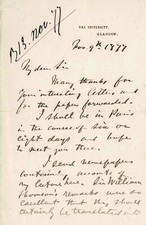 B/3. Nov. 77
THE UNIVERSITY,
GLASGOW.
Nov. 9th 1877
My dear Sir
Many thanks for
your interesting letter, and
for the paper forwarded.
I shall be in Paris
in the course of six or
eight days and hope
to meet you there.
I send newspapers
containing accounts of
my lecture here. Sir William
Thomson's remarks were so
excellent that they should
certainly be translated into